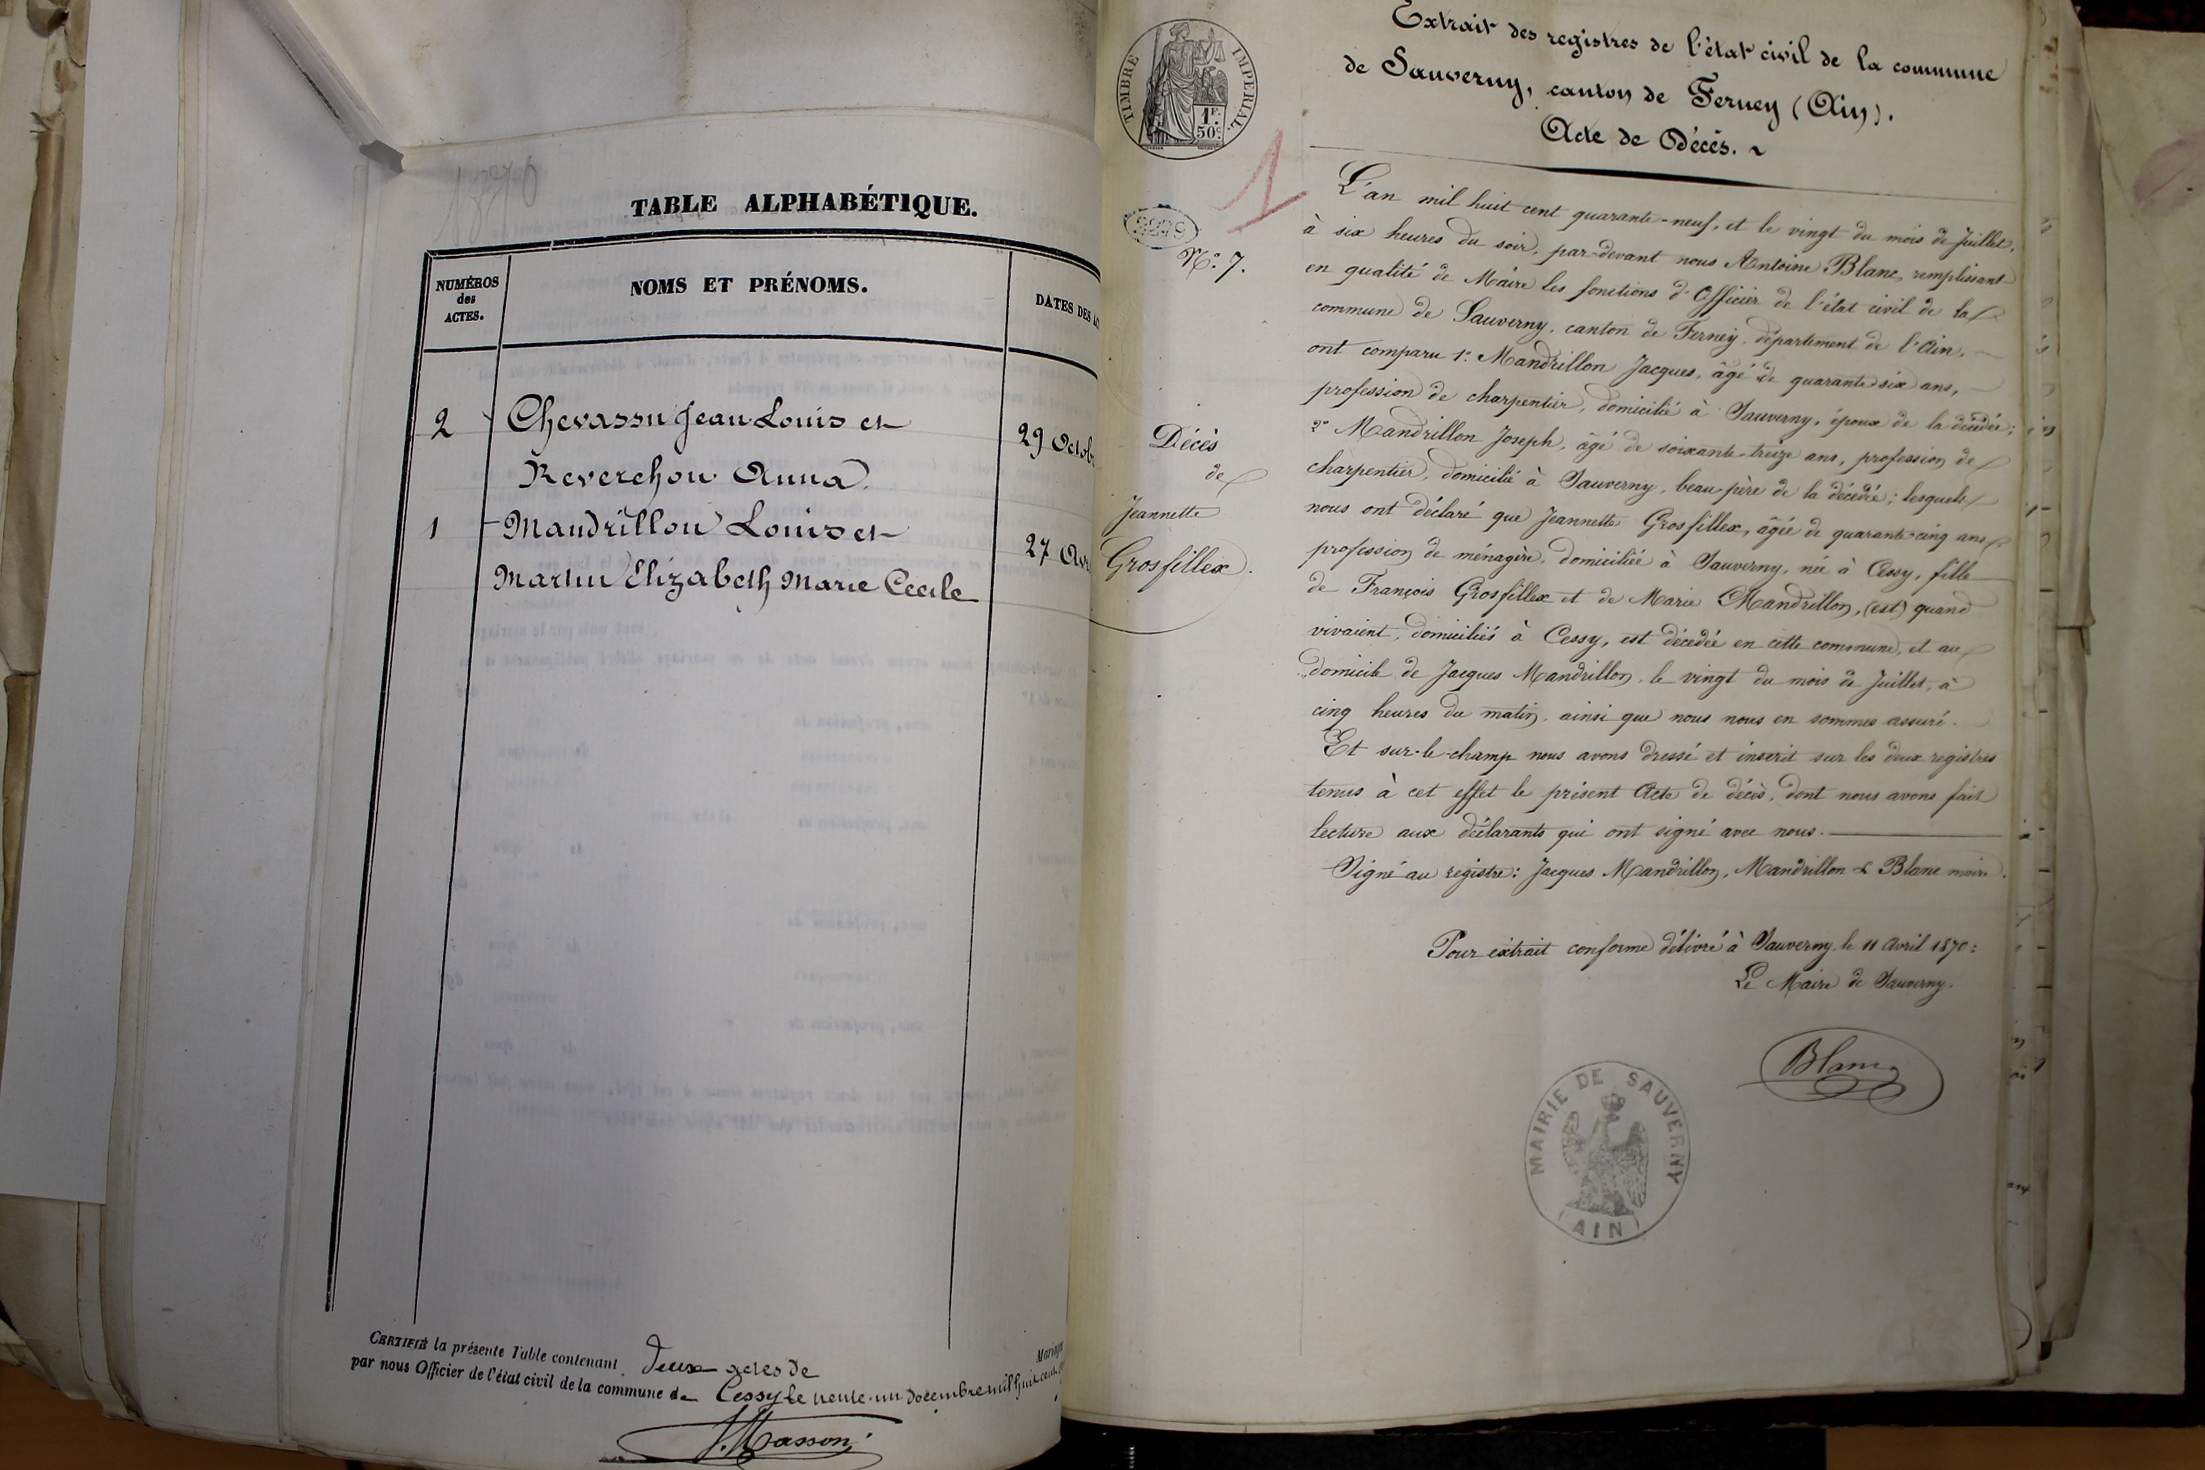 TABLE ALPHABÉTIQUE.
NUMÉROS
des
ACTES.
NOMS ET PRÉNOMS.
DATES DES
2
Chevassu Jean Louis et
29 Octob
Reverchon Anna
1
Mandrillon Louis et
27
Martin Elizabeth Marie Cecile
CERTIFIÉ la présente Table contenant deux actes de Mariage
par nous Officier de l'état civil de la commune de Cessy le trente-un decembre mil huit cent
Masson
TIMBRE IMPERIAL
1F.
50c
Extrait des registres de l'état civil de la commune
de Sauverny, canton de Ferney (Ain).
Acte de Décès.
N.º 7.
Décès
de
Jeannette
Grosfillex.
L'an mil huit cent quarante-neuf, et le vingt du mois de Juillet,
à six heures du soir, par-devant nous Antoine Blanc, remplissant
en qualité de Maire les fonctions d'Officier de l'état civil de la
commune de Sauverny, canton de Ferney, département de l'Ain,
ont comparu 1º. Mandrillon Jacques, âgé de quarante six ans,
profession de charpentier, domicilié à Sauverny, époux de la décédée;
2º Mandrillon Joseph, âgé de soixante-treize ans, profession de
charpentier, domicilié à Sauverny, beau-père de la décédée; lesquels
nous ont déclaré que Jeannette Grosfillex, âgée de quarante cinq ans
profession de ménagère, domiciliée à Sauverny, née à Cessy, fille
de François Grosfillex et de Marie Mandrillon, (est) quand
vivaient, domiciliés à Cessy, est décédée en cette commune, et au
domicile de Jacques Mandrillon, le vingt du mois de Juillet, à
cinq heures du matin, ainsi que nous nous en sommes assuré.
Et sur-le-champ nous avons dressé et inscrit sur les deux registres
tenus à cet effet le présent Acte de décès, dont nous avons fait
lecture aux déclarants qui ont signé avec nous.
Signé au registre: Jacques Mandrillon, Mandrillon & Blanc maire.
Pour extrait conforme délivré à Sauverny, le 11 Avril 1870:
Le Maire de Sauverny.
Blanc
MAIRIE DE SAUVERNY
(AIN)